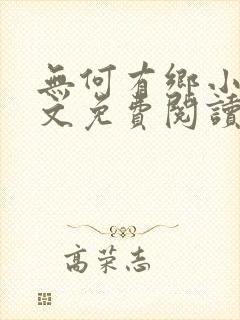 無何有鄉小
文免費閱讀
高荣志